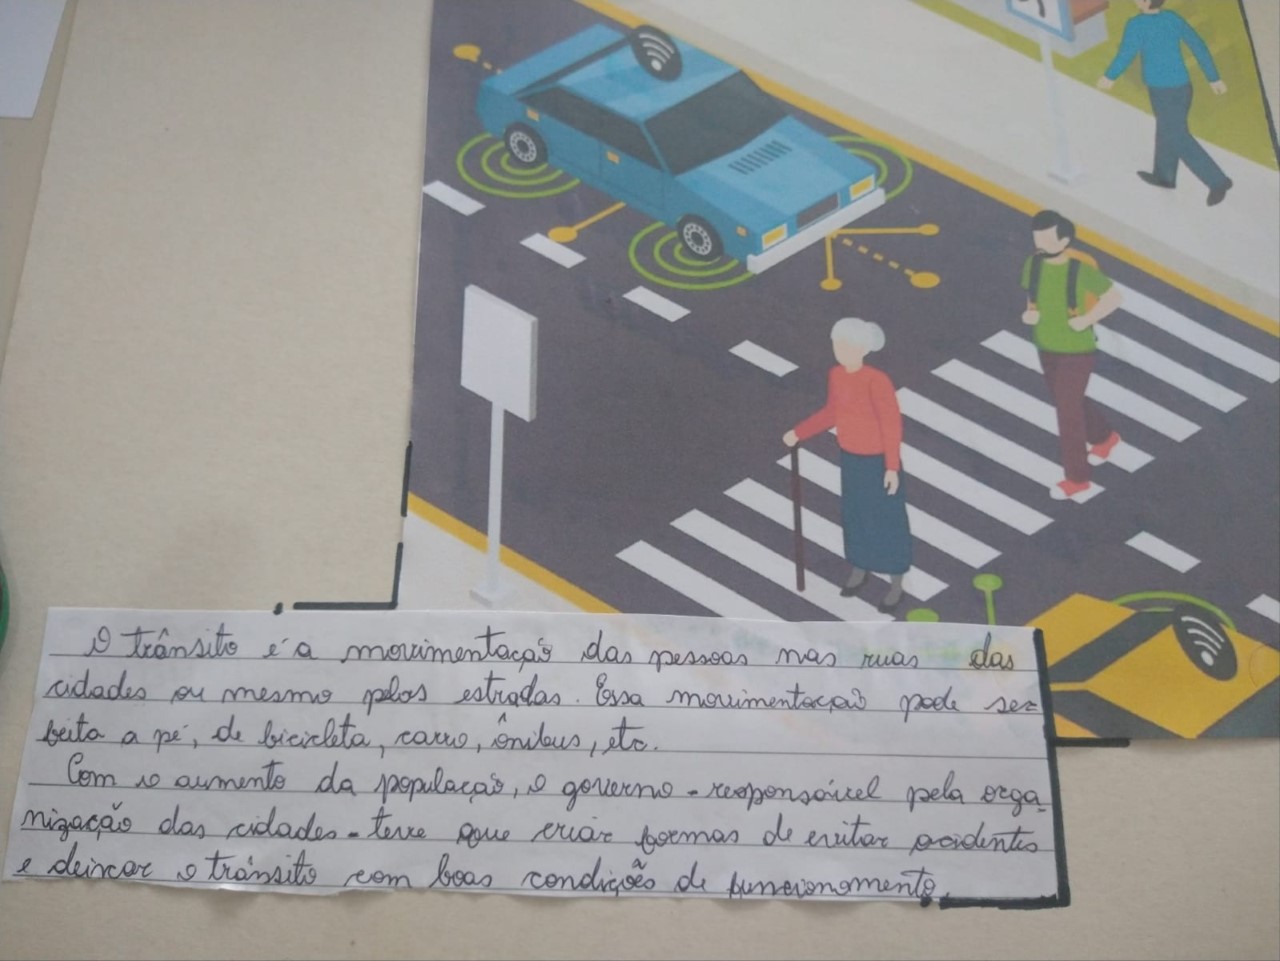 O trânsito é a movimentação das pessoas nas ruas das
cidades ou mesmo pelas estradas. Essa movimentação pode ser
feita a pé, de bicicleta, carro, ônibus, etc.
Com o aumento da população, o governo - responsável pela orga-
nização das cidades - teve que criar formas de evitar acidentes
e deixar o trânsito com boas condições de funcionamento.